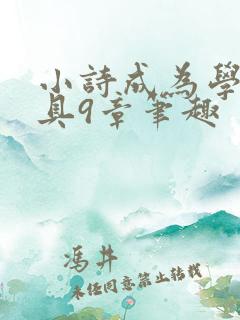 小詩成為學
具9章筆趣
馮井
未经同意禁止转载